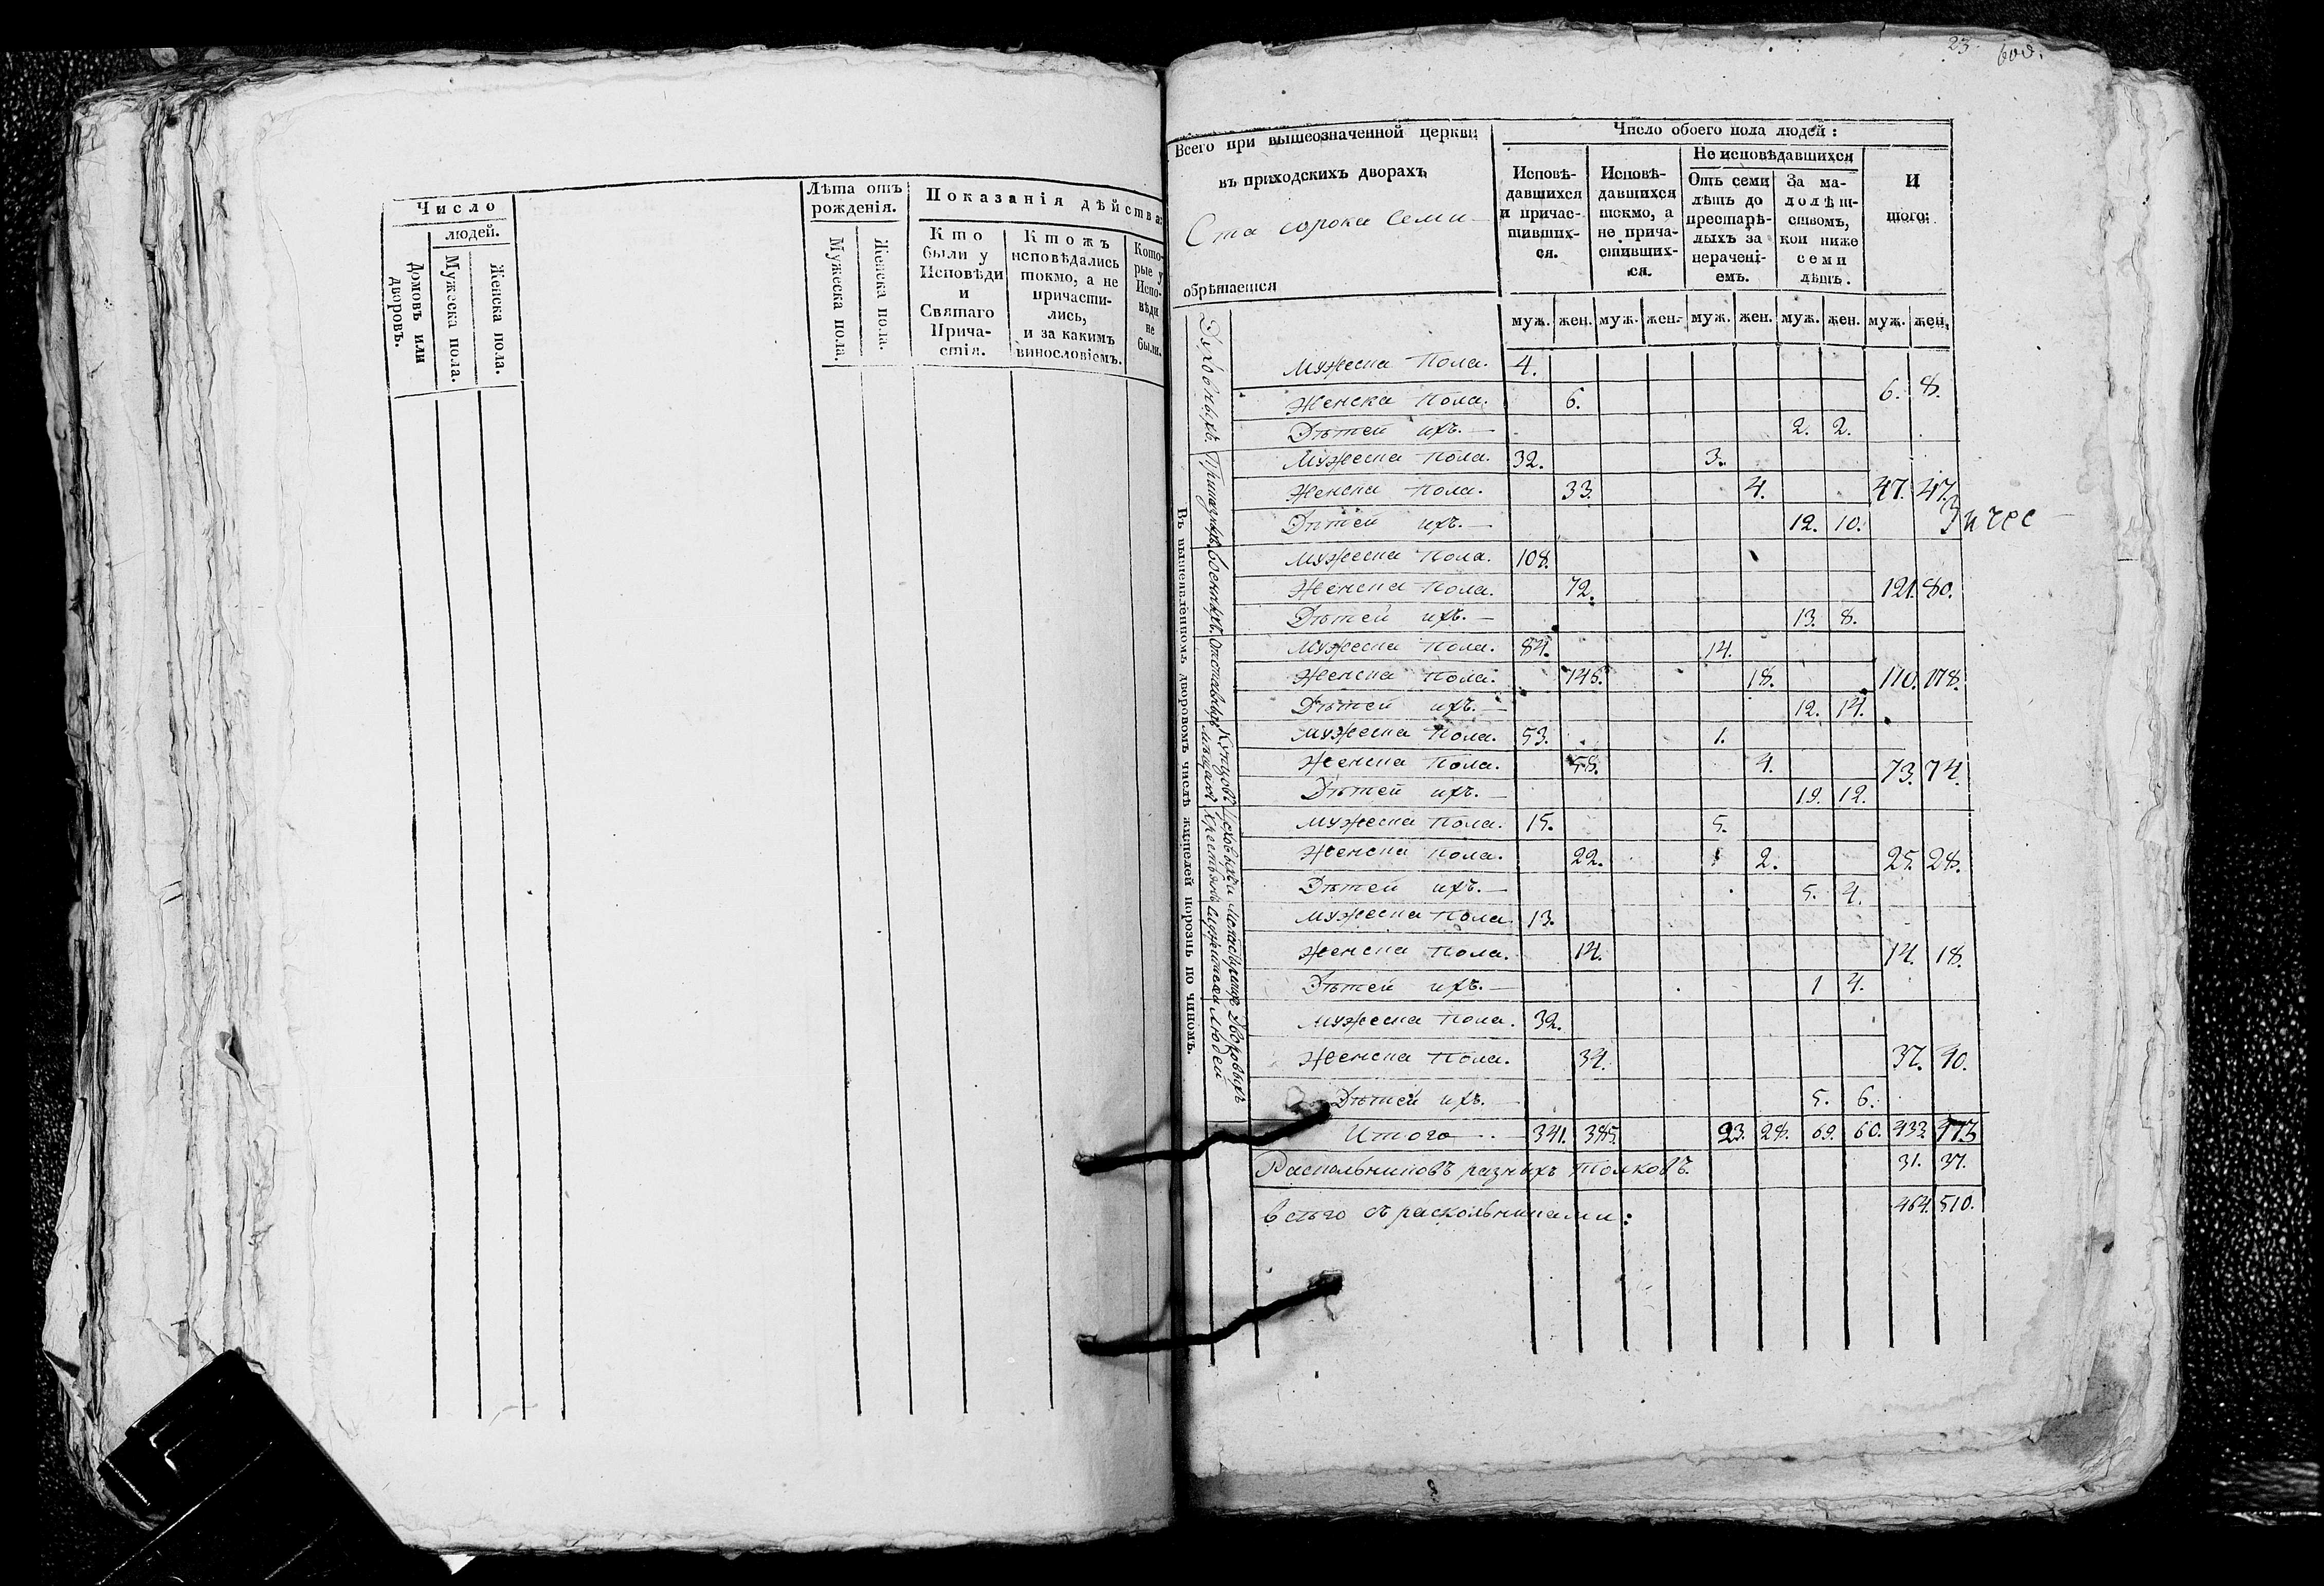 Число
людей.
Домовъ или дворовъ.
Мужеска пола.
Женска пола.
Лѣта отъ рожденія.
Мужеска пола.
Женска пола.
Показанія дѣйства:
Кто были у Исповѣди и Святаго Прича-стія.
Ктожъ исповѣдались токмо, а не причасти-лись, и за какимъ винословіемъ.
Кото-рые у Испо-вѣди не были.
23.
Всего при вышеозначенной церкви
въ приходскихъ дворахъ
Ста сорока Семи
обрѣтается
Число обоего пола людей :
Исповѣ-давшихся и причас-тивших-ся.
Исповѣ-давшихся токмо, а не прича-стивших-ся.
Не исповѣдавшихся
Отъ семи лѣтъ до престарѣ-лыхъ за нерачені-емъ.
За ма-лолѣт-ствомъ, кои ниже семи лѣтъ.
И
того:
муж. жен. муж. жен. муж. жен. муж. жен. муж. жен.
Въ вышеявленномъ дворовомъ числѣ жителей порознь по чиномъ.
Духовныхъ
Мужеска пола. 4.
Женска пола. 6. 6. 8.
Дѣтей ихъ. 2. 2.
Приказныхъ.
Мужеска пола. 32. 3.
Женска пола. 33. 4. 47. 47.
Дѣтей ихъ. 12. 10.
Военныхъ.
Мужеска пола. 108.
Женска пола. 72. 121. 80.
Дѣтей ихъ. 13. 8.
Отставныхъ
Мужеска пола. 84. 14.
Женска пола. 146. 18. 110. 178.
Дѣтей ихъ. 12. 14.
Купцовъ мѣщанъ
Мужеска пола. 53. 1.
Женска пола. 58. 4. 73. 74.
Дѣтей ихъ. 19. 12.
Цеховыхъ и
Мужеска пола. 15. 5.
Женска пола. 22. 2. 25. 28.
Дѣтей ихъ. 5. 4.
Крестьянъ
Мужеска пола 13.
Женска пола. 14. 14. 18.
Дѣтей ихъ. 1 4.
Дворовыхъ людей
Мужеска пола. 32.
Женска пола. 34. 37. 40.
Дѣтей ихъ. 5. 6.
Итого 341. 385. 23. 28. 69. 60. 433. 473
Раскольниковъ разныхъ толковъ. 31. 37.
Всего съ раскольниками: 464. 510.